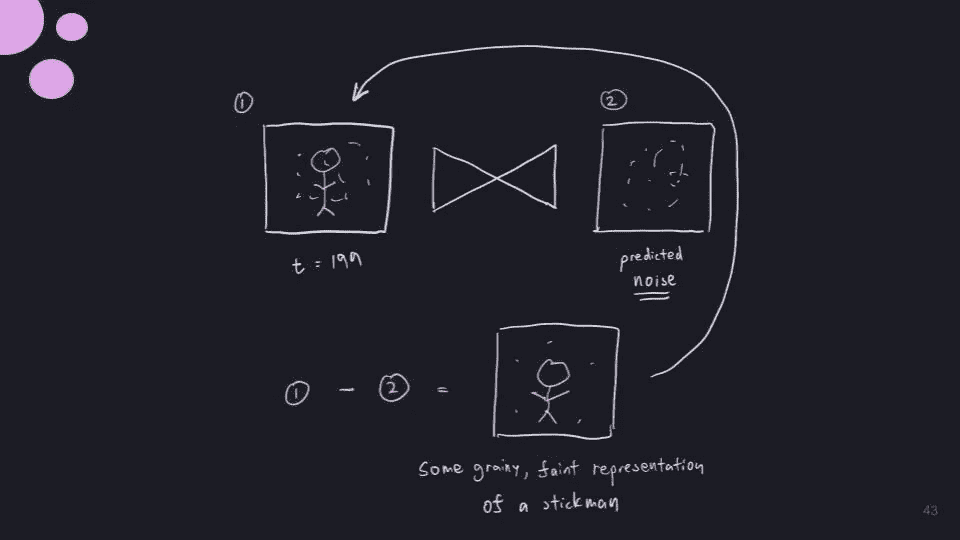 ① ②
t = 199
predicted
noise
① - ② =
Some grainy, faint representation
of a stickman
43